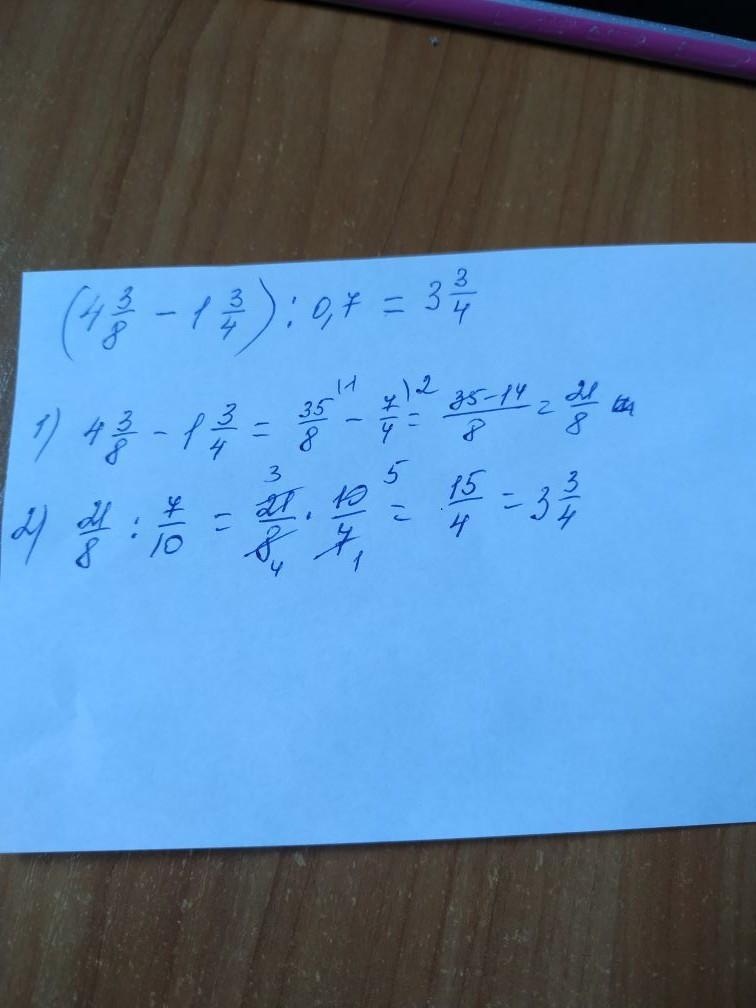 (4 3/8 - 1 3/4) : 0,7 = 3 3/4
1) 4 3/8 - 1 3/4 = 35/8 \1 - 7/4 \2 = 35-14/8 = 21/8
2) 21/8 : 7/10 = 21 3/8 4 · 10 5/7 1 = 15/4 = 3 3/4